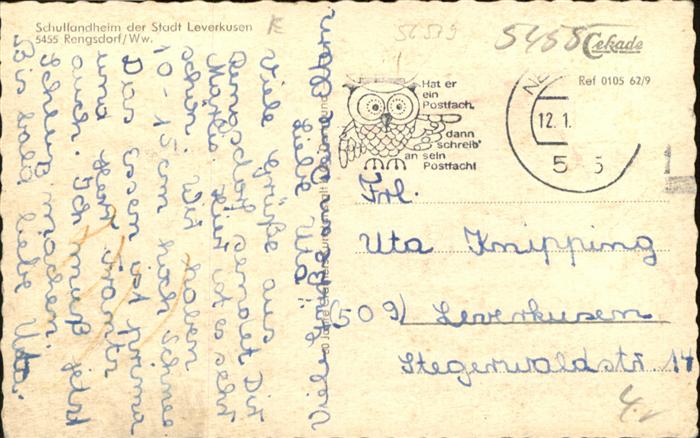 Schullandheim der Stadt Leverkusen
5455 Rengsdorf/Ww.
5455
Cekade
Ref 0105 62/9
Hat er
ein
Postfach,
dann
schreib'
an sein
Postfach!
12.1.
5 5
Liebe Uta!
Viele Grüße aus
Rengsdorf sendet Dir
Heike. Hier ist es sehr
schön. Wir haben
10-15 cm hoch Schnee.
Das Essen ist prima
und Herr Frantz
auch. Ich muß jetzt
Schluß machen.
Bis bald liebe Uta.
Frl.
Uta Knipping
(509) Leverkusen
Stegerwaldstr. 14
4.-